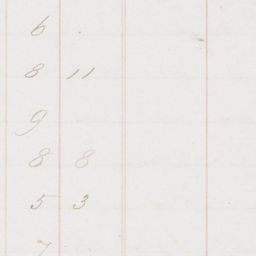 6 .
8 11
9
8 8
5 3
7